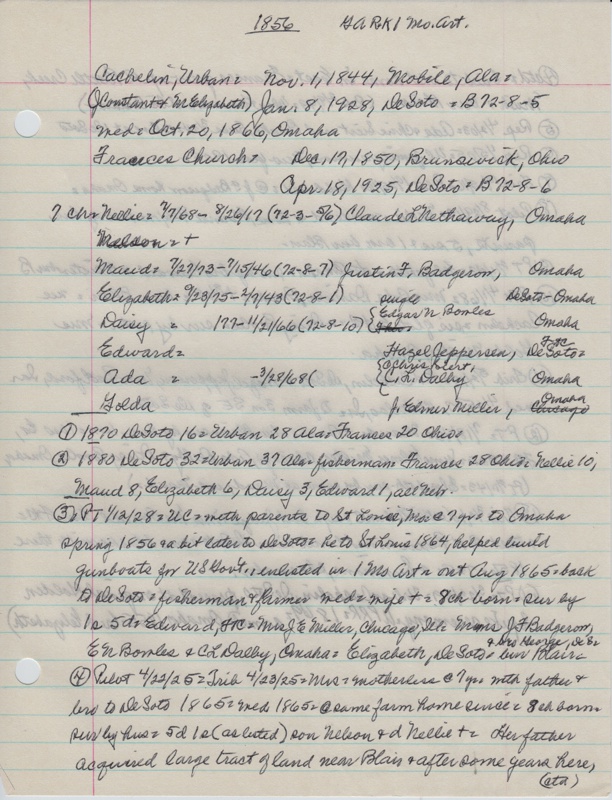 1856 GARK1 Mo. Art.
Cachelin, Urban = Nov. 1, 1844, Mobile, Ala =
(Constant & M Elizabeth) Jan. 8, 1928, DeSoto = B72-8-5
med = Oct. 20, 1866, Omaha
Frances Church = Dec. 17, 1850, Brunswick, Ohio
Apr. 18, 1925, DeSoto = B72-8-6
7 ch = Nellie = 7/7/68 - 8/26/17 (72-3-5/6) Claude L Nethaway, Omaha
= +
Maud = 7/27/73 - 7/15/46 (72-8-7) Justin F. Badgerow, Omaha
Elizabeth = 9/23/75 - 2/7/43 (72-8-1) single DeSoto - Omaha
Daisy = 177 - 11/21/66 (72-8-10) {Edgar N Bowles Omaha
Edward = Hazel Jeppersen, FtC DeSoto =
Ada = - 3/28/68 ( {Chris C. L. Dalby Omaha
Golda J. Elmer Miller, Omaha Chicago
① 1870 DeSoto 16 = Urban 28 Ala = Frances 20 Ohio =
② 1880 DeSoto 32 = Urban 37 Ala = fisherman = Frances 28 Ohio = Nellie 10,
Maud 8, Elizabeth 6, Daisy 3, Edward 1, all Neb.
③ PT 1/12/28 = UC = with parents to St Louis, Mo @ 7 yrs = to Omaha
spring 1856 & a bit later to DeSoto = he to St Louis 1864, helped build
gunboats for US Govt., enlisted in 1 Mo Art = out Aug 1865 = back
to DeSoto = fisherman & farmer med = wife + = 8 ch born = sur by
1s 5d = Edward, FtC = Mrs J E Miller, Chicago, Ill = Mmes J F Badgerow,
E N Bowles & C L Dalby, Omaha = Elizabeth, DeSoto = & bro George, DeS = bur Blair =
④ Pilot 4/22/25 = Trib 4/23/25 = Mrs = motherless @ 7 yrs with father &
bro to DeSoto 1865 = med 1865 = @ same farm home since = 8 ch born =
sur by hus = 5d 1s (as listed) son Nelson & d Nellie + = Her father
acquired large tract of land near Blair & after some years here,
(ctd)